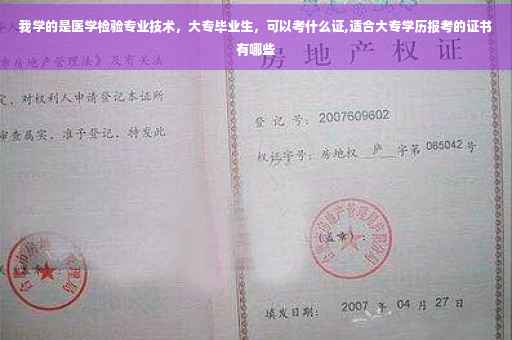 我学的是医学检验专业技术，大专毕业生，可以考什么证,适合大专学历报考的证书
有哪些
房地产权证
市房地产管理法》及有关法
定，对权利人申请登记本证所
审查属实，准予登记，特发此
登记号：2007609602
权证字号：房地权 庐 字第 085042 号
（盖章）：
填发日期：2007 年 04 月 27 日